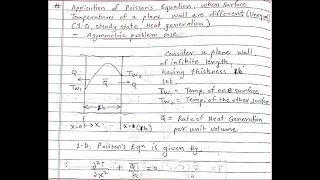 # Application of Poisson's Equation when Surface
Temperatures of a plane wall are different (Unequal)
(1-D, steady state, Heat generation)
- Asymmetric problem case
Consider a plane wall
of infinite length,
having thickness 'b'
let
Tw1 = Temp. of one surface
Tw2 = Temp. of the other surface
Q Tw2
Q̄ Q
Tw1
b
x=0 → x
Q̄ = Rate of Heat Generation
per unit volume
1-D, Poisson's Eqn is given by
∂²T/∂x² + Q̄/k = 0